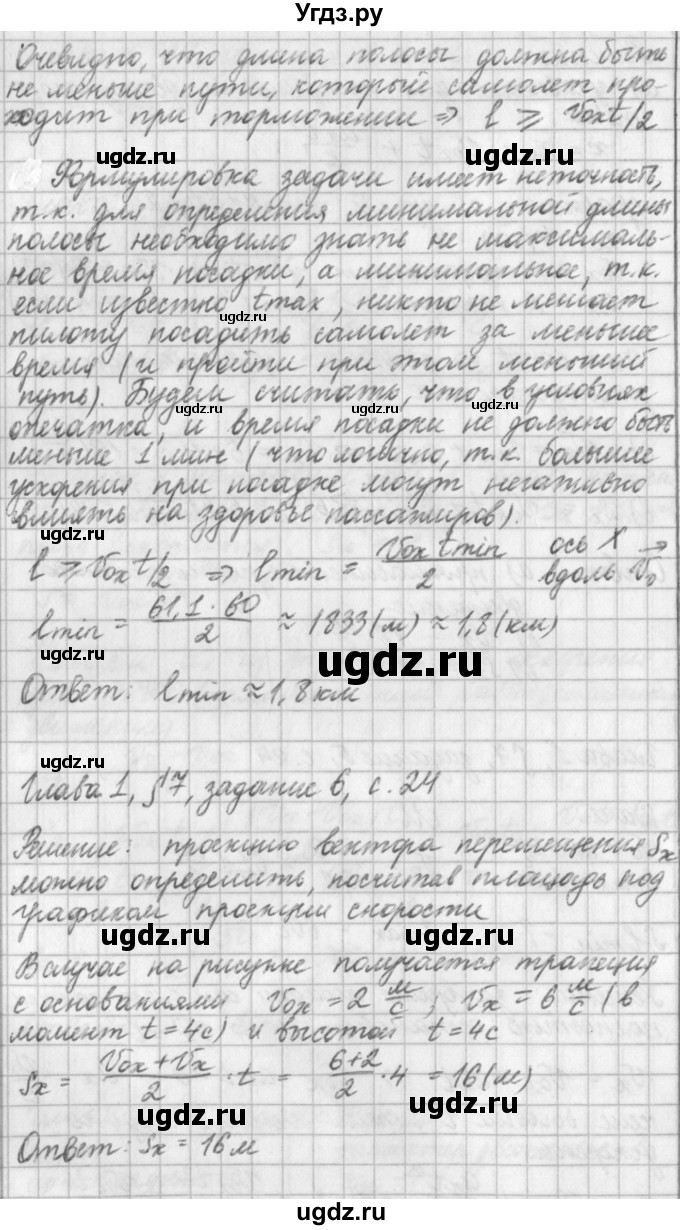 Угдз.ру
Очевидно, что длина полосы должна быть
не меньше пути, который самолет про-
ходит при торможении ⇒ l ⩾ Voxt/2
ugdz.ru ugdz.ru
Формулировка задачи имеет неточность,
т.к. для определения минимальной длины
полосы необходимо знать не максималь-
ное время посадки, а минимальное, т.к.
если известно tmax, никто не мешает
ugdz.ru
пилоту посадить самолет за меньшее
время (и пройти при этом меньший
путь). Будем считать, что в условиях
ugdz.ru ugdz.ru
опечатка, и время посадки не должно быть
меньше 1 мин (что логично, т.к. большие
ускорения при посадке могут негативно
влиять на здоровье пассажиров).
ugdz.ru
l ⩾ Voxt/2 ⇒ lmin = Vox tmin / 2 ось X вдоль V₀
lmin = 61,1 · 60 / 2 ≈ 1833(м) ≈ 1,8(км)
ugdz.ru ugdz.ru
Ответ: lmin ≈ 1,8 км
ugdz.ru
Глава 1, §7, задание 6, с. 24
Решение: проекцию вектора перемещения Sx
можно определить, посчитав площадь под
графиком проекции скорости
ugdz.ru ugdz.ru
В случае на рисунке получается трапеция
с основаниями Vox = 2 м/с; Vx = 6 м/с (в
момент t = 4с) и высотой t = 4с
Sx = Vox + Vx / 2 · t = 6+2 / 2 · 4 = 16(м)
ugdz.ru ugdz.ru
Ответ: Sx = 16 м
ugdz.ru ugdz.ru